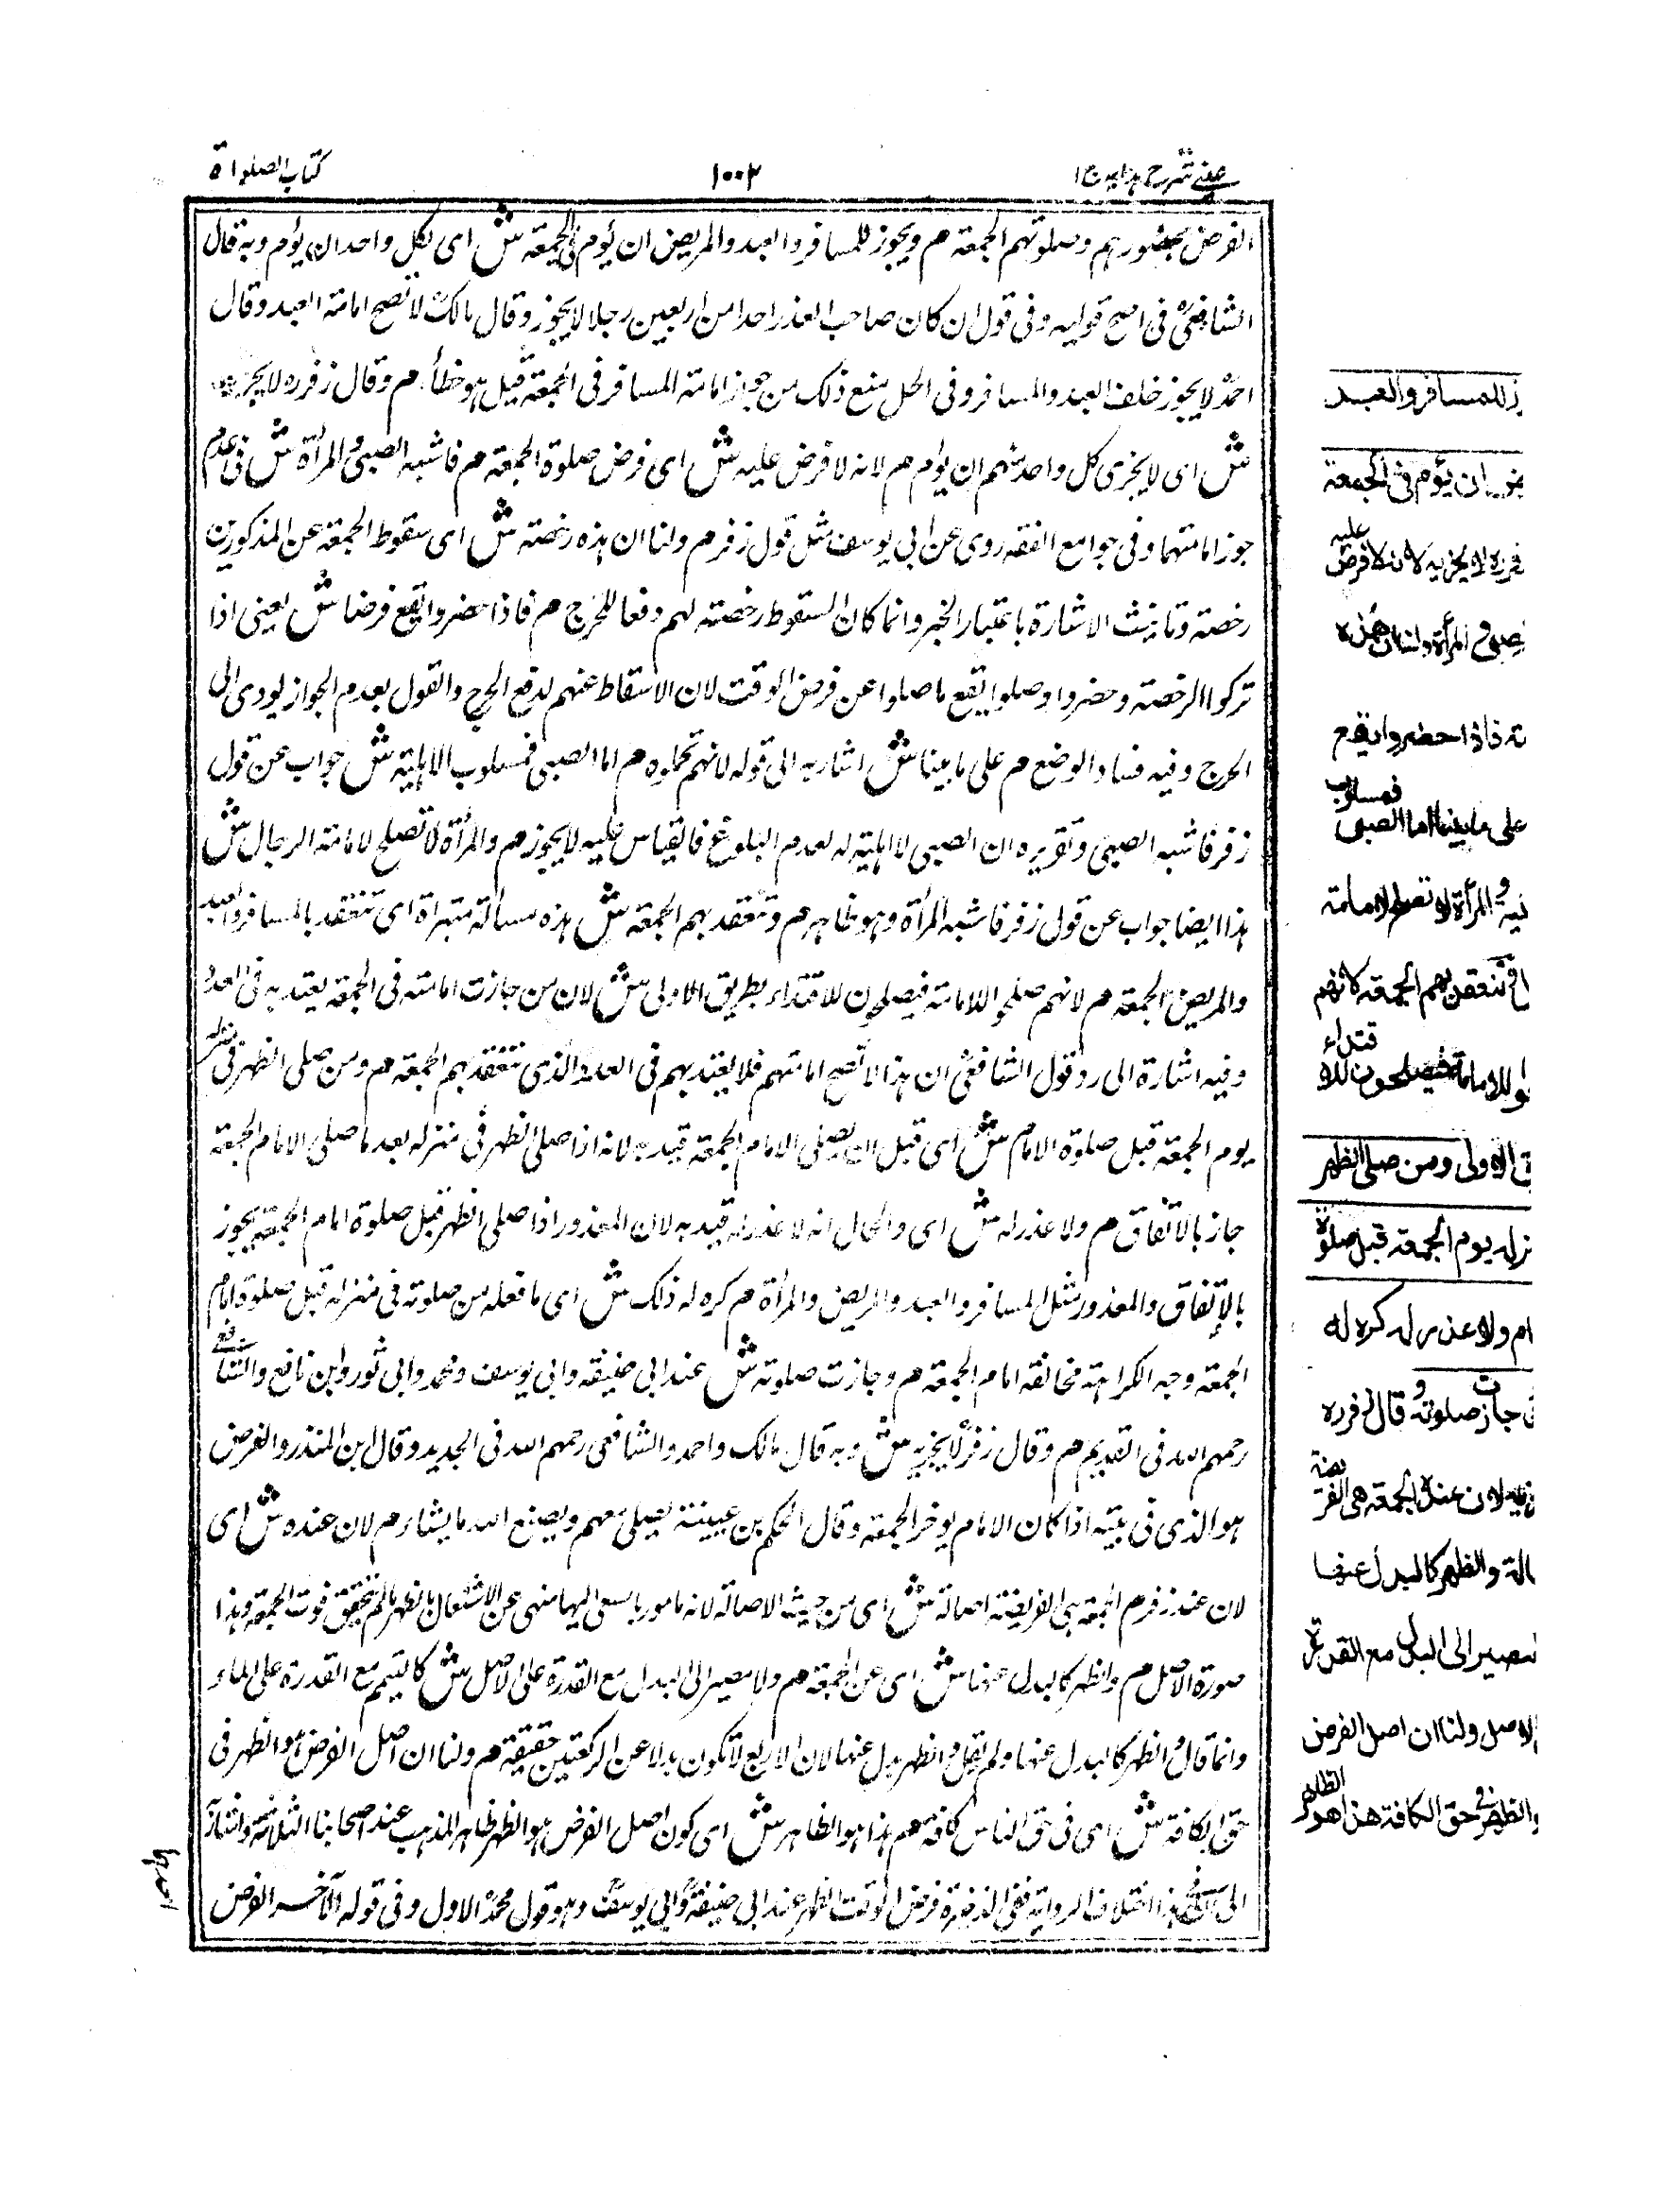 عينى شرح هدايه ج ١
١٠٠٢
كتاب الصلواة
الفرض بحضورهم وصلوتهم الجمعة م ويجوز للمسافر والعبد والمريض ان يؤم فى الجمعة ش اى لكل واحد ان يؤم وبه قال
الشافعىؒ فى اصح قوليه وفى قول ان كان صاحب العذر احدا من اربعين رجلا لا يجوز وقال مالكؒ لا تصح امامة العبد وقال
احمدؒ لا يجوز خلف العبد والمسافر وفى الحل منع ذلك من جواز امامة المسافر فى الجمعة قيل هو خطأ م وقال زفر رہ لا يجزيه
ش اى لا يجزى كل واحد منهم ان يؤم م لانه لا فرض عليه ش اى فرض صلوة الجمعة م فاشبه الصبى والمرأة ش فى عدم
جوز امامتهما وفى جوامع الفقه روى عن ابى يوسف مثل قول زفر م ولنا ان هذه رخصة ش اى سقوط الجمعة عن المذكورين
رخصة وتانيث الاشارة باعتبار الخبر وانما كان السقوط رخصة لهم دفعا للحرج م فاذا حضروا يقع فرضا ش يعنى اذا
تركوا الرخصة وحضروا وصلوا يقع ما صلوا عن فرض الوقت لان الاسقاط عنهم لدفع الحرج والقول بعدم الجواز يودى الى
الحرج وفيه فساد الوضع م على ما بينا ش اشار به الى قوله لانهم تحملوه م اما الصبى فمسلوب الاهلية ش جواب عن قول
زفر فاشبه الصبى وتقريره ان الصبى لا اهلية له لعدم البلوغ فالقياس عليه لا يجوز م والمرأة لا تصلح لامامة الرجال ش
هذا ايضا جواب عن قول زفر فاشبه المرأة وهو ظاهر م وتنعقد بهم الجمعة ش هذه مسألة مبتدأة اى تنعقد بالمسافر والعبد
والمريض الجمعة م لانهم صلحوا للامامة فيصلحون للاقتداء بطريق الاولى ش لان من جازت امامته فى الجمعة يعتد به فى العدد
وفيه اشارة الى رد قول الشافعىؒ ان هذا لا تصح امامتهم فلا يعتد بهم فى العدد الذى تنعقد بهم الجمعة م ومن صلى الظهر فى منزله
يوم الجمعة قبل صلوة الامام ش اى قبل ان يصلى الامام الجمعة قيد به لانه اذا صلى الظهر فى منزله بعد ما صلى الامام الجمعة
جاز بالاتفاق م ولا عذر له ش اى والحال انه لا عذر له قيد به لان المعذور اذا صلى الظهر قبل صلوة امام الجمعة يجوز
بالاتفاق والمعذور مثل المسافر والعبد والمريض والمرأة م كره له ذلك ش اى ما فعله من صلوته فى منزله قبل صلوة امام
الجمعة وجه الكراهة مخالفة امام الجمعة م وجازت صلوته ش عند ابى حنيفة وابى يوسف ومحمد وابى ثور وابن نافع والشافعى
رحمهم الله فى القديم م وقال زفرؒ لا يجزيه ش وبه قال مالك واحمد والشافعى رحمهم الله فى الجديد وقال ابن المنذر والفرض
هو الذى فى بيته اذا كان الامام يوخر الجمعة وقال الحكم بن عيينة يصلى معهم ويصنع الله ما يشاء م لان عنده ش اى
لان عند زفر م الجمعة هى الفريضة اصالة ش اى من حيث الاصالة لانه مامور بالسعى اليها منهى عن الاشتغال بالظهر ما لم يتحقق فوت الجمعة وهذا
صورة الاصل م والظهر كالبدل عنها ش اى عن الجمعة م ولا مصير الى البدل مع القدرة على الاصل ش كالتيمم مع القدرة على الماء
وانما قال والظهر كالبدل عنها ولم يقل والظهر بدل عنها لان الاربع لا تكون بدلا عن الركعتين حقيقة م ولنا ان اصل الفرض هو الظهر فى
حق الكافة ش اى فى حق الناس كافة م هذا هو الظاهر ش اى كون اصل الفرض هو الظهر ظاهر المذهب عند اصحابنا الثلاثة واشار
الى هذا اختلاف الرواية ففى الذخيرة فرض الوقت الظهر عند ابى حنيفةؒ وابى يوسفؒ وهو قول محمدؒ الاول وفى قوله الآخر الفرض
احدها
ز للمسافر والعبد
يض ان يؤم فى الجمعة
زفر رہ لا يجزيه لانه لا فرض عليه
لصبى والمرأة ولنا ان هذه
ة فاذا حضروا يقع
على ما بينا اما الصبى فمسلوب
لية والمرأة لا تصلح لامامة
ل وتنعقد بهم الجمعة لانهم
وا للامامة فيصلحون للاقتداء
ق الاولى ومن صلى الظهر
نزله يوم الجمعة قبل صلوة
ام ولا عذر له كره له
وجازت صلوته وقال زفر رہ
زيه لان عنده الجمعة هى الفريضة
الة والظهر كالبدل عنها
مصير الى البدل مع القدرة
الاصل ولنا ان اصل الفرض
والظهر فى حق الكافة هذا هو الظاهر